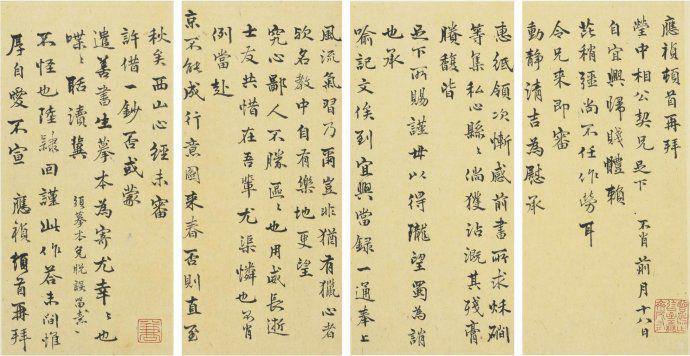 應禎頓首再拜
瑩中相公契兄足下 不肖前月十八日
自宜興歸賤體賴
芘稍彊尚不任作勞耳
令兄來即審
動靜清吉為慰承
惠紙領次慚感前書所求秌碉
等集私心縣〻倘獲沾溉其殘膏
賸馥皆
足下所賜謹毋以得隴望蜀為誚
也承
喻記文俟到宜興當録一通奉上
風流氣習乃爾豈非猶有獵心者
欤名教中自有樂地更望
究心鄙人不勝區〻也用威長逝
士友共惜在吾輩尤渠憐也不肖
例當赴
京不能成行意圖來春否則直至
秋矣西山心經未審
許借一鈔否或蒙
遣善書生摹本為寄尤幸〻〻也
喋〻聒瀆冀 須摹本免脫誤留意〻
不怪也陸隸回謹此作答未間惟
厚自愛不宣 應禎頓首再拜